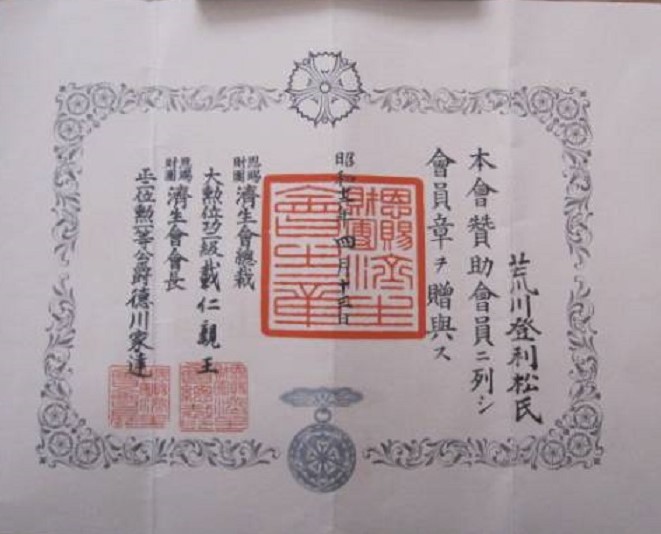 荒川登利松氏
本會贊助會員ニ列シ
會員章ヲ贈與ス
昭和年四月十日
恩賜財團濟生會之章
恩賜財團濟生會總裁
大勲位功一級載仁親王
恩賜財團濟生會會長
正二位勲一等公爵德川家達